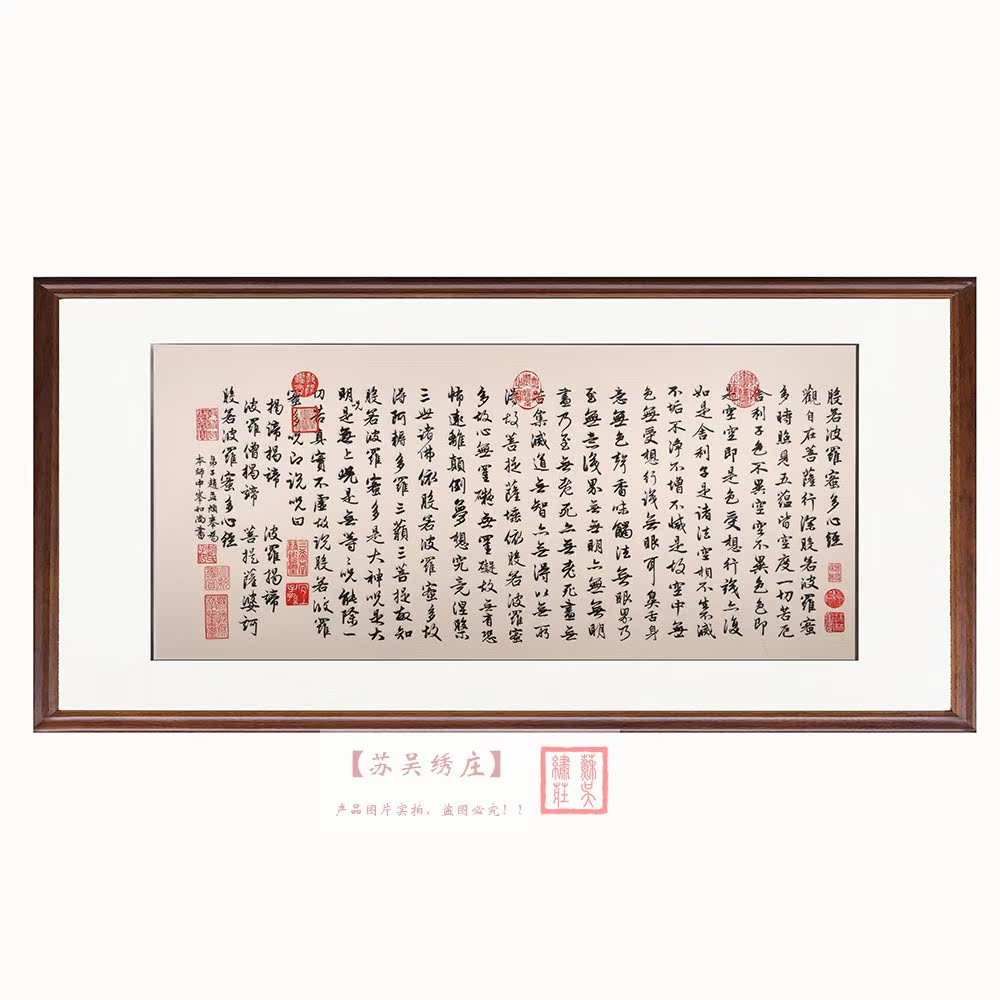 般若波羅蜜多心經
觀自在菩薩行深般若波羅蜜
多時照見五蘊皆空度一切苦厄
舍利子色不異空空不異色色即
是空空即是色受想行識亦復
如是舍利子是諸法空相不生不滅
不垢不淨不增不減是故空中無
色無受想行識無眼耳鼻舌身
意無色聲香味觸法無眼界乃
至無意識界無無明亦無無明
盡乃至無老死亦無老死盡無
苦集滅道無智亦無得以無所
得故菩提薩埵依般若波羅蜜
多故心無罣礙無罣礙故無有恐
怖遠離顛倒夢想究竟涅槃
三世諸佛依般若波羅蜜多故
得阿耨多羅三藐三菩提故知
般若波羅蜜多是大神呪是大
明呪是無上呪是無等々呪能除一
切苦真實不虛故說般若波羅
蜜多呪即說呪曰
揭諦揭諦 波羅揭諦
波羅僧揭諦 菩提薩婆訶
般若波羅蜜多心經
弟子趙孟頫奉為
本師中峯和尚書
【苏吴绣庄】
蘇吳繡莊
产品图片实拍，盗图必究！！